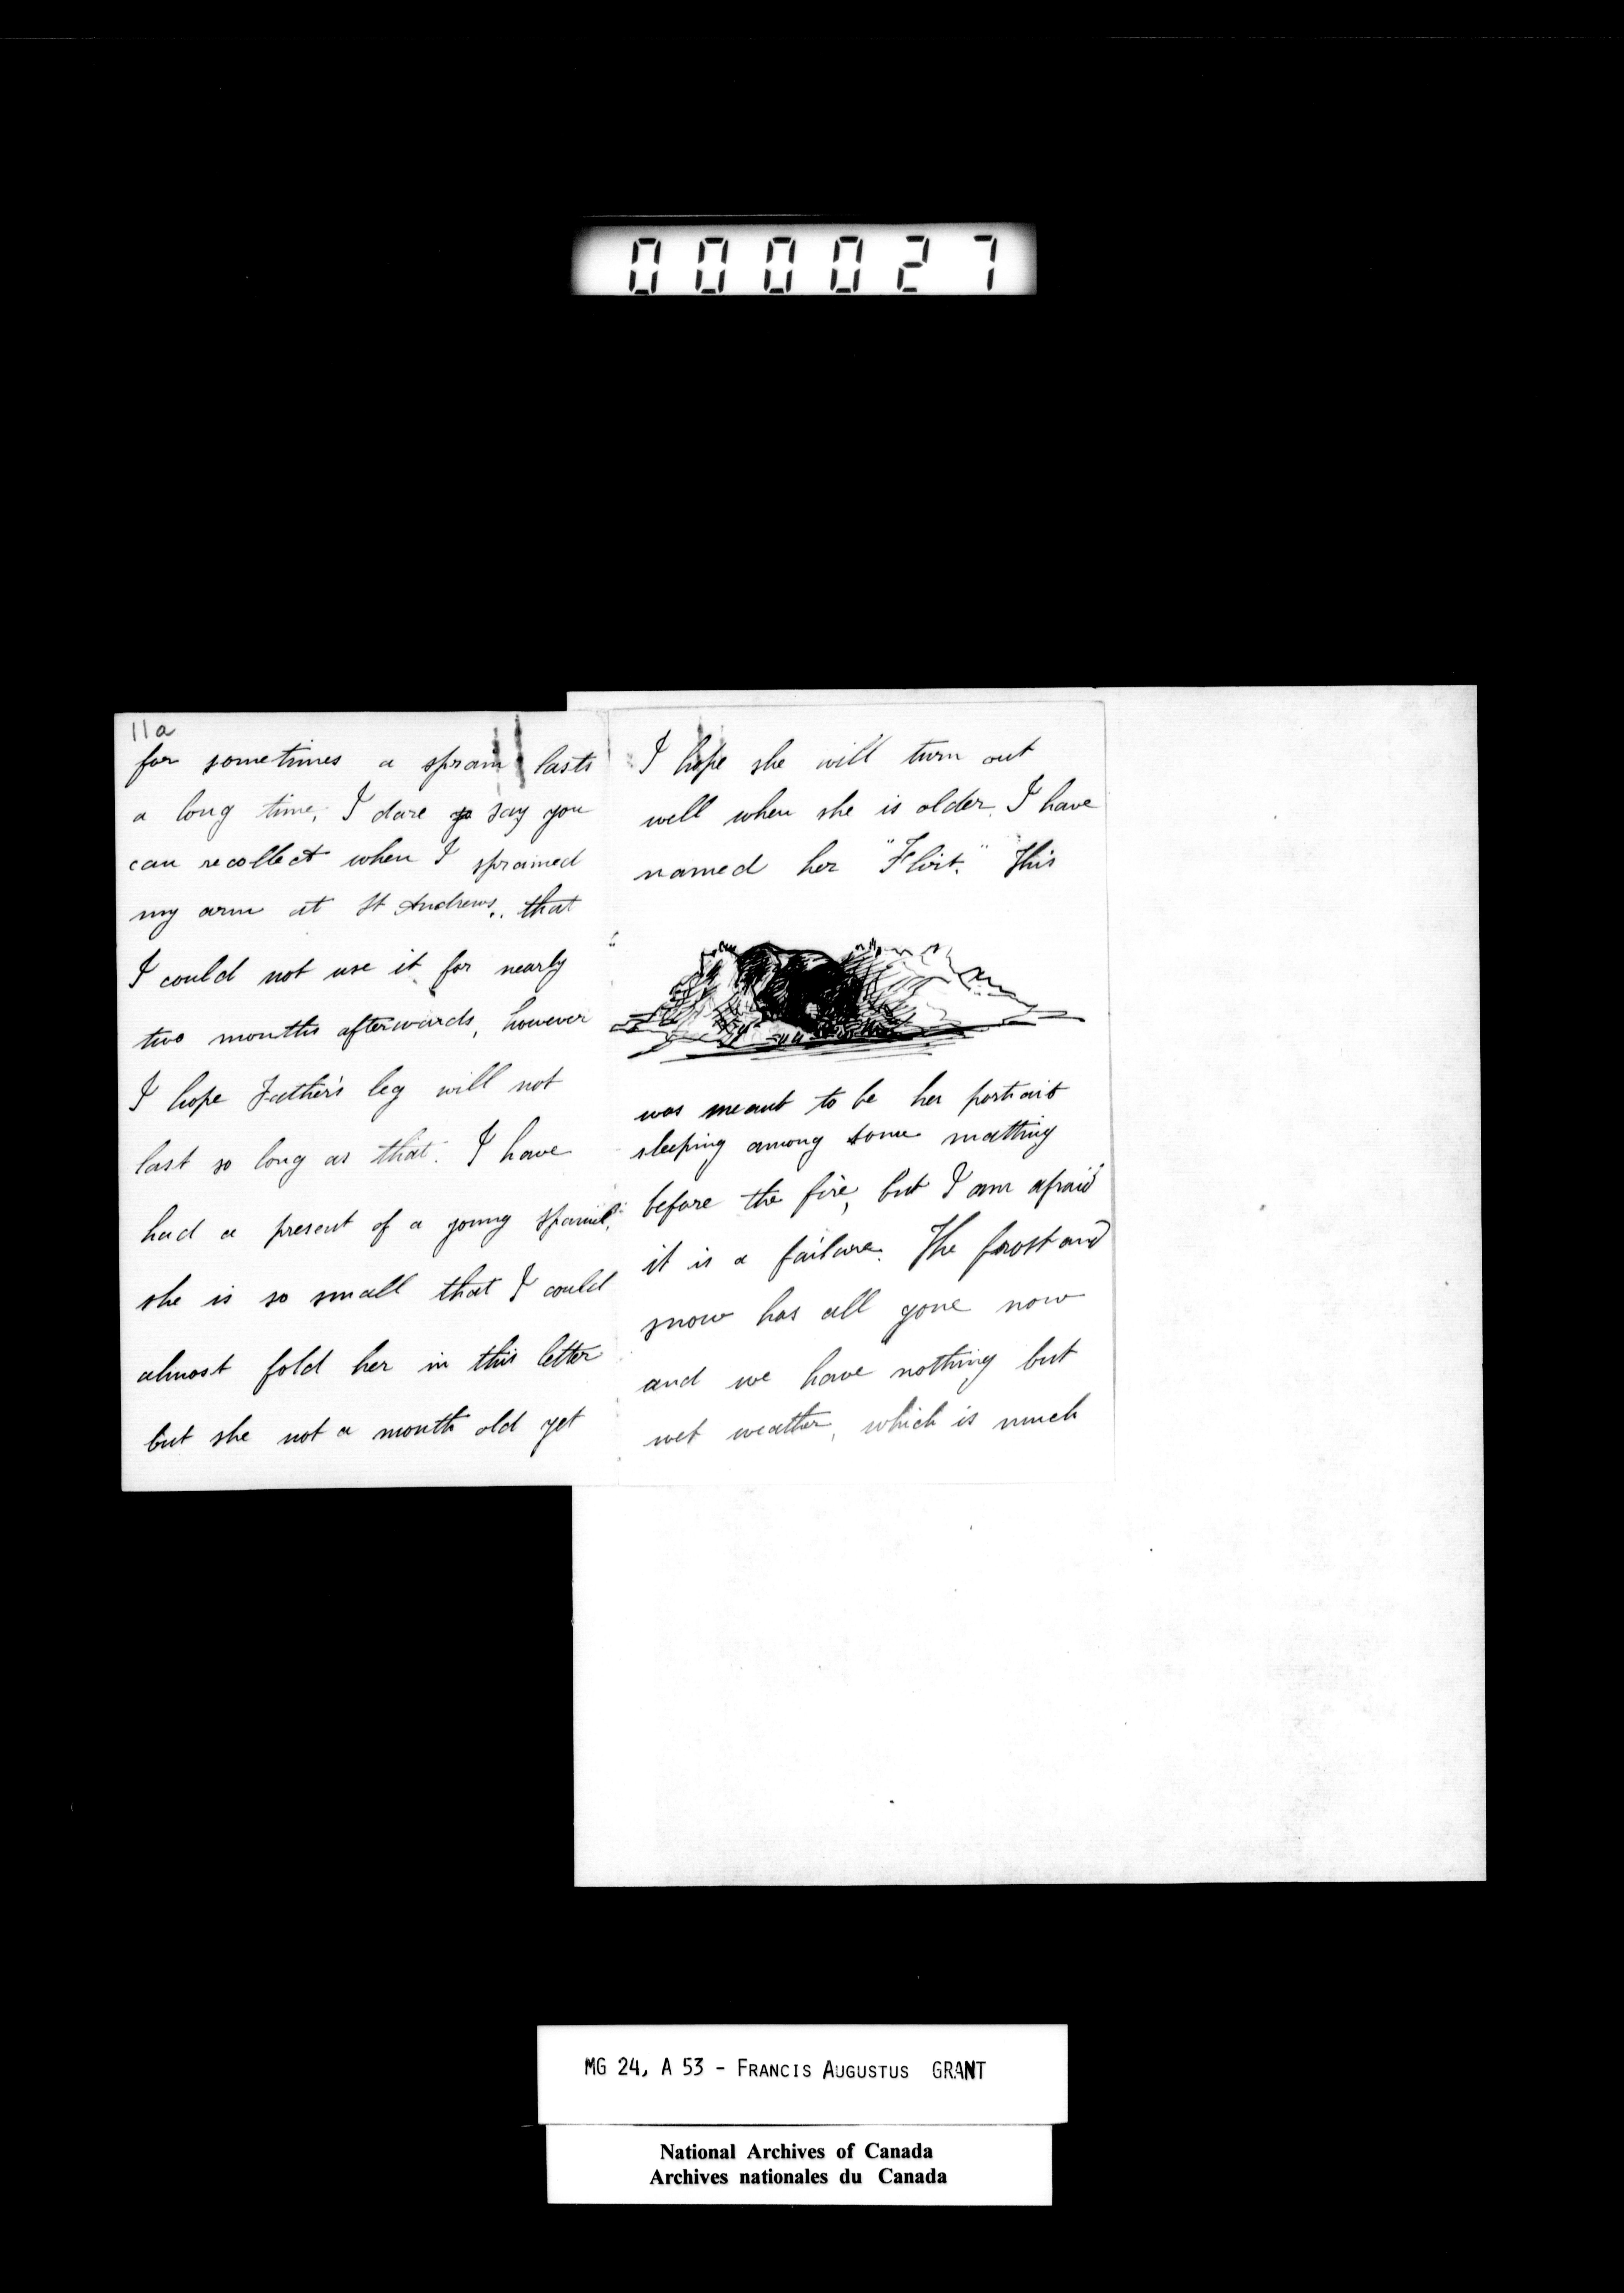 000027
11a
for sometimes a sprain lasts
a long time, I dare say you
can recollect when I sprained
my arm at St Andrews,, that
I could not use it for nearly
two months afterwards, however
I hope Father's leg will not
last so long as that. I have
had a present of a young spaniel,
she is so small that I could
almost fold her in this letter
but she not a month old yet
I hope she will turn out
well when she is older. I have
named her "Flirt." This
was meant to be her portrait
sleeping among some matting
before the fire, but I am afraid
it is a failure. The frost and
snow has all gone now
and we have nothing but
wet weather, which is much
MG 24, A 53 - FRANCIS AUGUSTUS GRANT
National Archives of Canada
Archives nationales du Canada